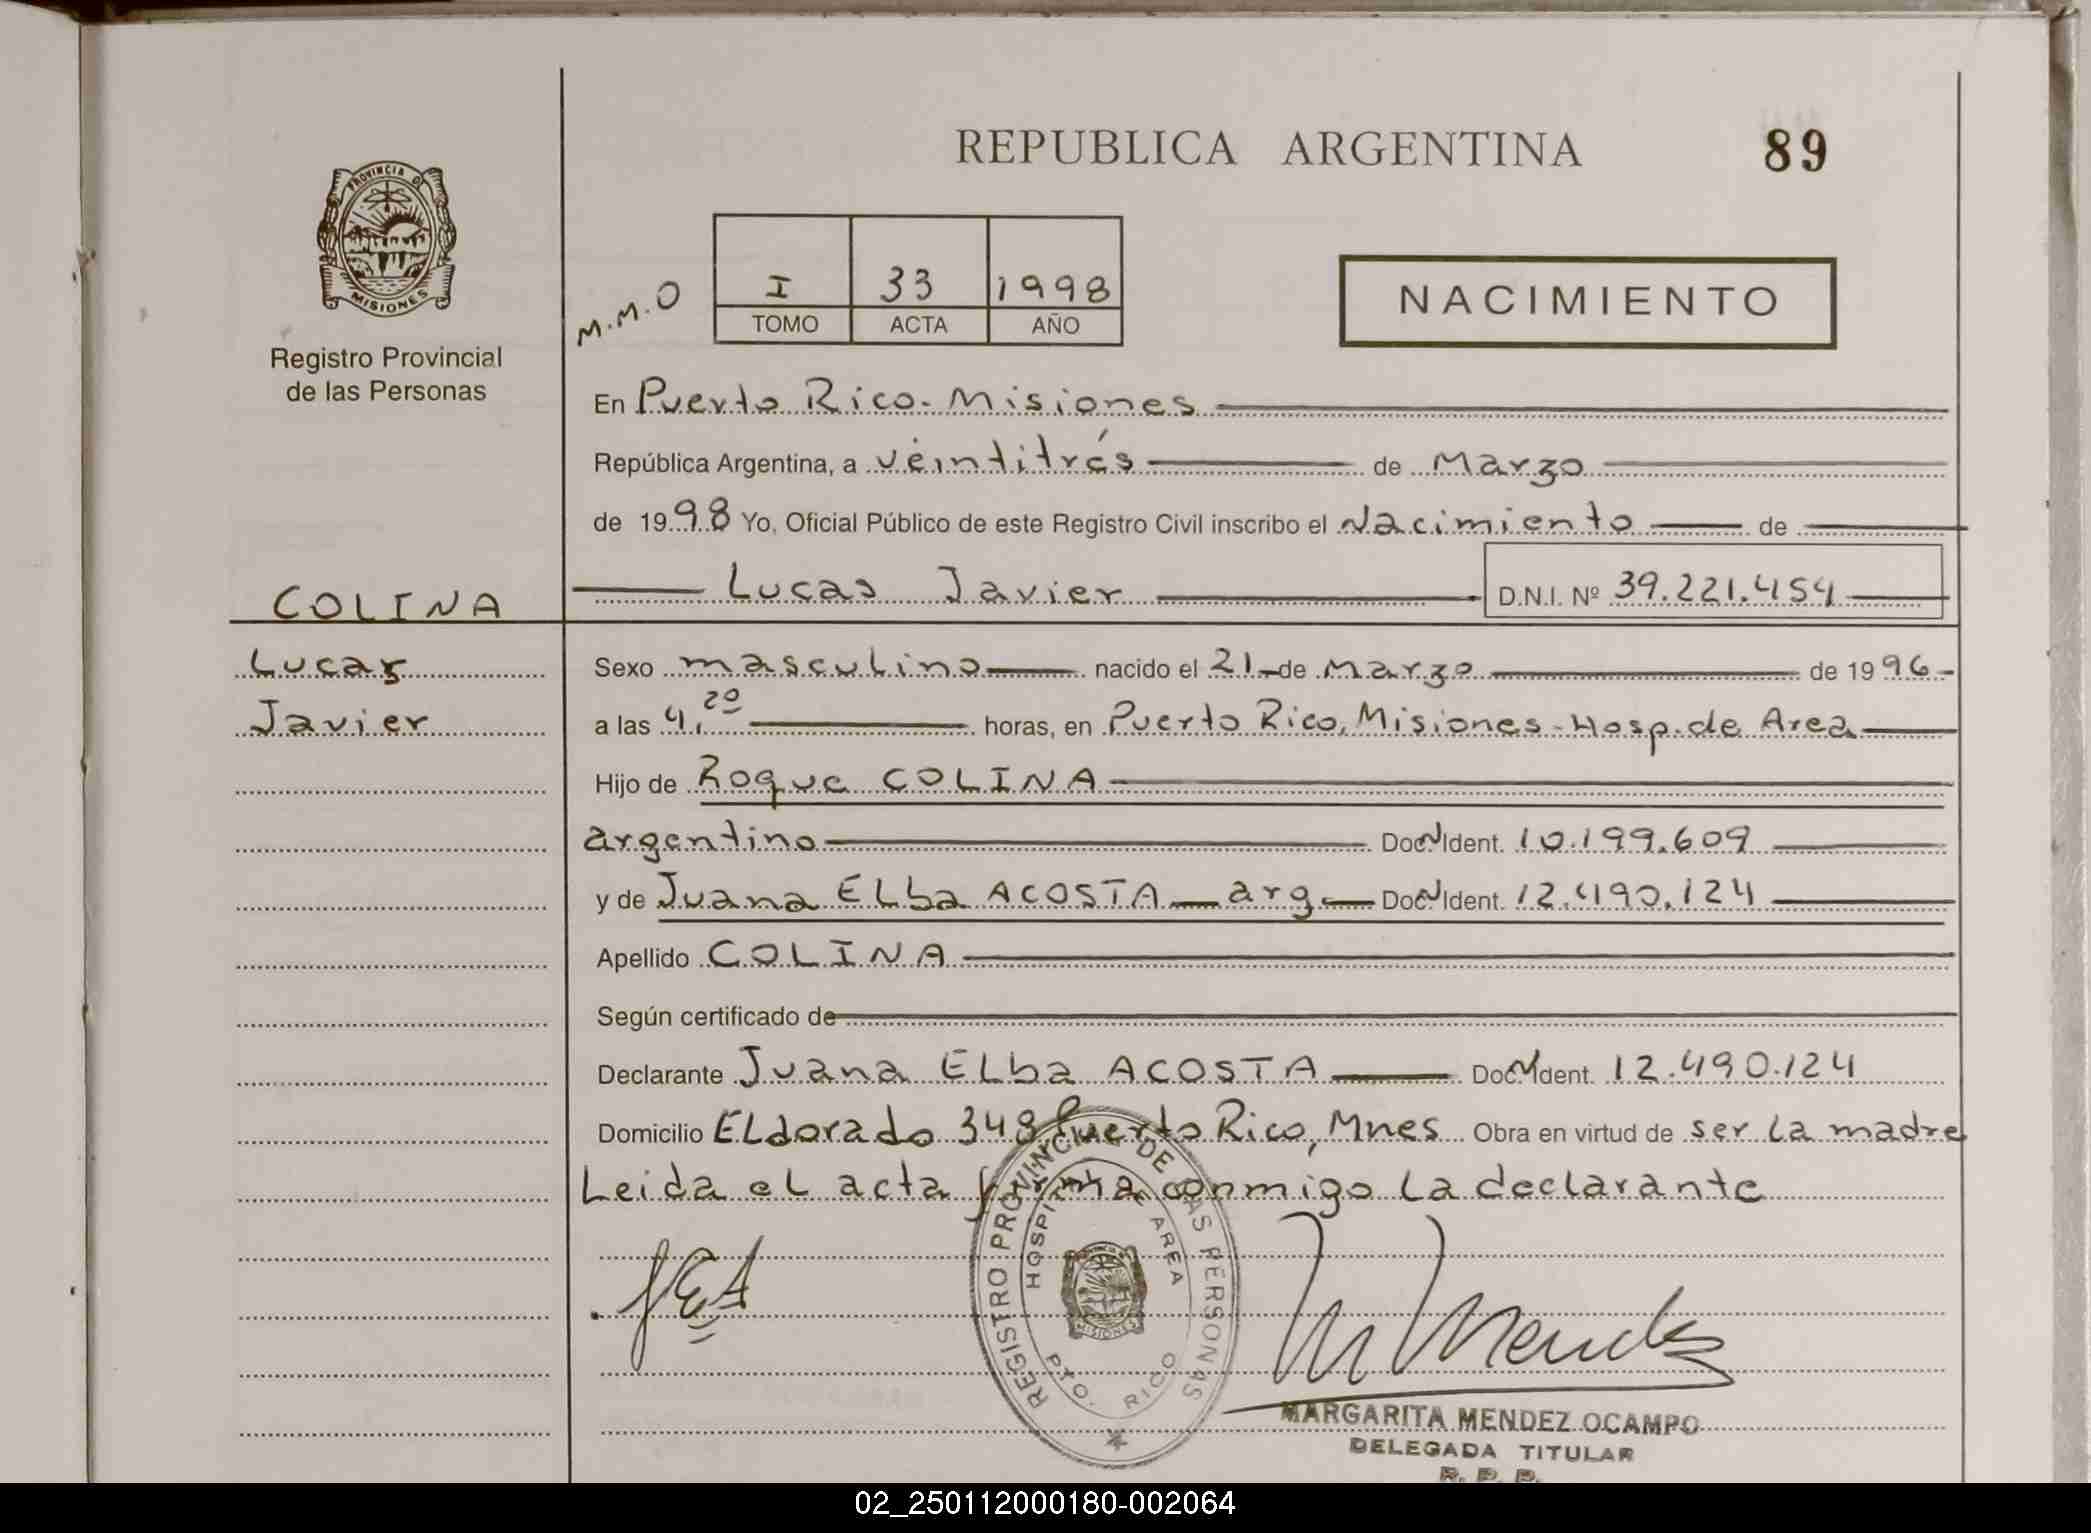 REPUBLICA ARGENTINA
89
PROVINCIA DE
MISIONES
Registro Provincial
de las Personas
M.M.O
I 33 1998
TOMO ACTA AÑO
NACIMIENTO
En Puerto Rico. Misiones
República Argentina, a veintitrés de Marzo
de 1998 Yo, Oficial Público de este Registro Civil inscribo el Nacimiento de
COLINA
Lucas Javier D.N.I. Nº 39.221.454
Lucas
Javier
Sexo masculino nacido el 21 de Marzo de 1996
a las 4,20 horas, en Puerto Rico, Misiones - Hosp. de Area
Hijo de Roque COLINA
argentino Doc N Ident. 10.199.609
y de Juana ELba ACOSTA arg. Doc N Ident. 12.490.124
Apellido COLINA
Según certificado de
Declarante Juana ELba ACOSTA Doc N Ident. 12.490.124
Domicilio ELdorado 348 Puerto Rico, Mnes Obra en virtud de ser la madre
Leida el acta firma conmigo la declarante
REGISTRO PROVINCIAL DE LAS PERSONAS
HOSPITAL AREA
MISIONES
PTO. RICO
JEA
M Mendez
MARGARITA MENDEZ OCAMPO
DELEGADA TITULAR
R. P. P.
02_250112000180-002064